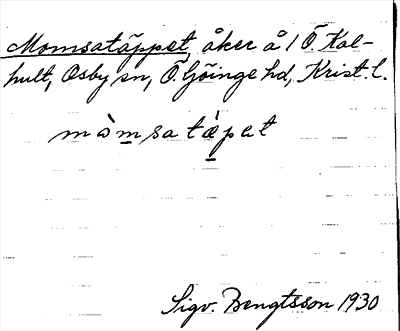 Momsatäppet, åker å 1 Ö. Kal-
hult, Osby sn, Ö. Göinge hd, Krist. l.
mòmsatä̀pet
Sigv. Bengtsson 1930